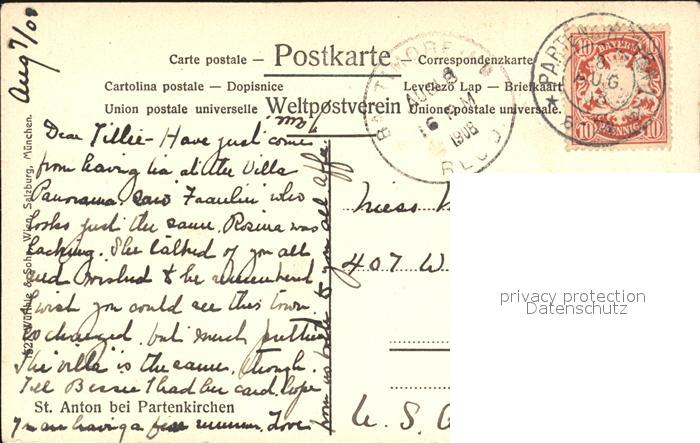 Aug 7/08
Carte postale — Postkarte — Correspondenzkarte
Cartolina postale — Dopisnice Levelező Lap — Briefkaart
Union postale universelle Weltpostverein Unione postale universale.
BALTIMORE, MD.
AUG 18
6 PM
1908
REC'D
PARTENKIRCHEN
8 AUG
BAYERN
10 10
10 PFENNIG 10
Dear Tillie - Have just come
from having tea at the Villa
Panorama. Saw Fraulein who
looks just the same. Rosina was
packing. She talked of you all
and wished to be remembered
I wish you could see this town
so changed, but much prettier
The villa is the same, though.
Tell Bessie I had her card. hope
you are having a fine summer. Love
from us both to you all. aff.
Miss
407 W
U. S. A
Würthle & Sohn, Wien, Salzburg, München.
St. Anton bei Partenkirchen
privacy protection
Datenschutz